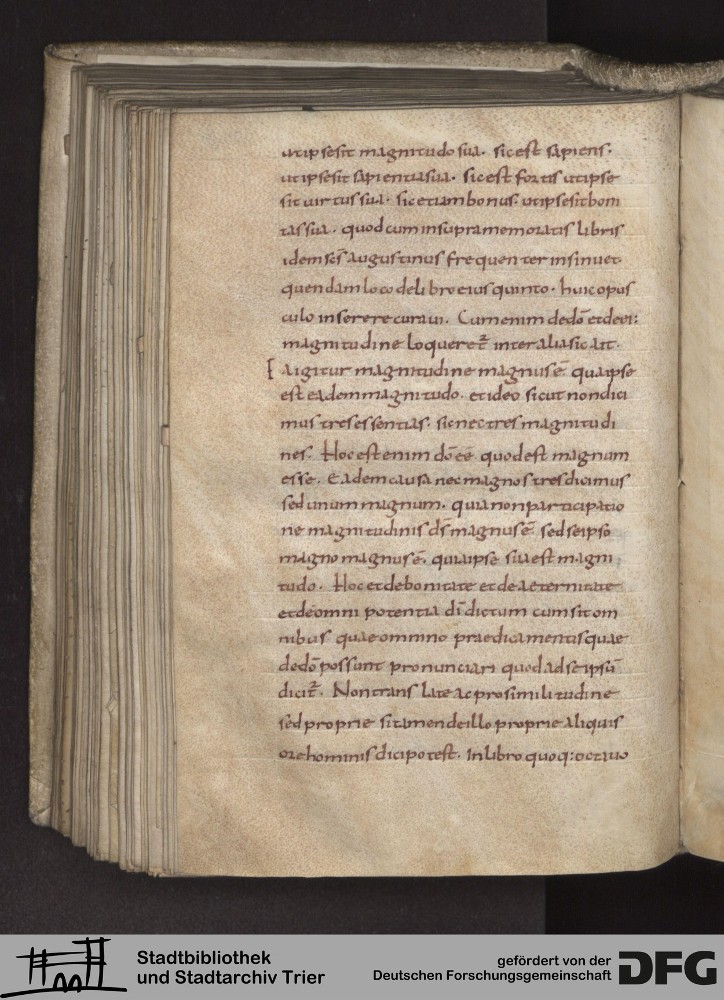 ut ipse sit magnitudo sua. sic est sapiens.
ut ipse sit sapientia sua. sic est fortis ut ipse
sit uirtus sua. sic etiam bonus. ut ipse sit boni
tas sua. quod cum in supra memoratis libris
idem scs̄ augustinus frequenter insinuet
quendam loco de libro eius quinto. huic opus
culo inserere curaui. Cum enim de dō et de ei:
magnitudine loqueret̄ inter alia sic ait.
[ a igitur magnitudine magnus ē. qua ipse
est eadem magnitudo. et ideo sicut non dici
mus tres essentias. sic nec tres magnitudi
nes. Hoc est enim dō eē quod est magnum
esse. Eadem causa nec magnos tres dicimus
sed unum magnum. quia non participatio
ne magnitudinis ds̄ magnus ē. sed se ipso
magno magnus ē. quia ipse sua est magni
tudo. Hoc et de bonitate et de aeternitate
et de omni potentia dī dictum cum sit om
nibus quae omnino praedicamentis quae
de dō possunt pronunciari quod ad se ipsū
dicit̄. Non translate ac pro similitudine
sed proprie si tamen de illo proprie aliquis
ore hominis dici potest. In libro quoq: octauo
Stadtbibliothek
und Stadtarchiv Trier
gefördert von der
Deutschen Forschungsgemeinschaft
DFG